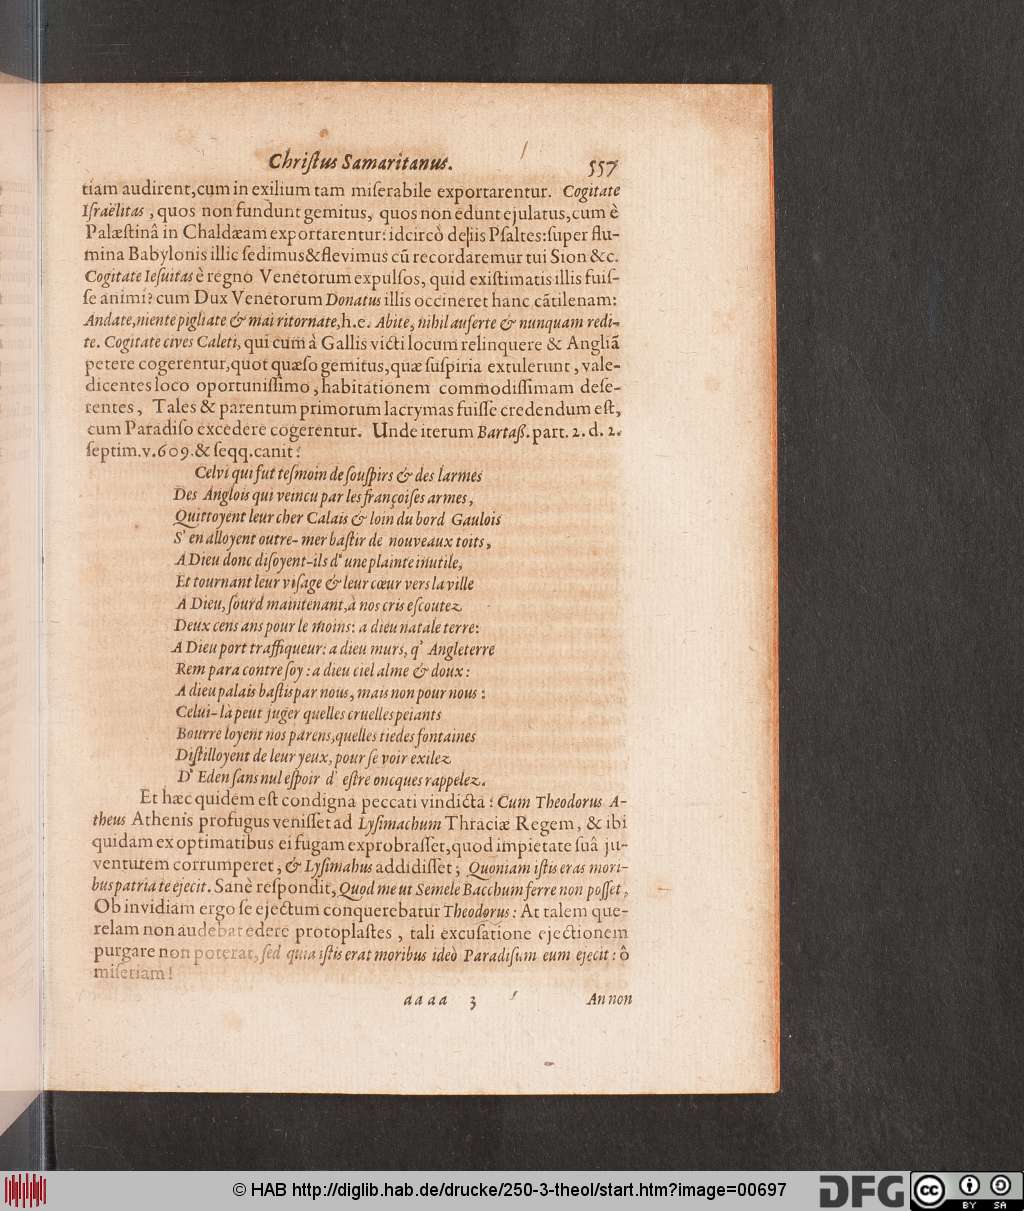 Chriſtus Samaritanus. 557
tiam audirent,cum in exilium tam miſerabile exportarentur. Cogitate
Iſraëlitas, quos non fundunt gemitus, quos non edunt ejulatus,cum è
Palæſtinâ in Chaldæam exportarentur: idcircò de iis Pſaltes:ſuper flu-
mina Babylonis illic ſedimus&flevimus cũ recordaremur tui Sion &c.
Cogitate Ieſuitas è regno Venetorum expulſos, quid exiſtimatis illis fuiſ-
ſe animi? cum Dux Venetorum Donatus illis occineret hanc cãtilenam:
Andate,niente pigliate & mai ritornate,h.e. Abite, nihil auferte & nunquam redi-
te. Cogitate cives Caleti, qui cum à Gallis victi locum relinquere & Angliã
petere cogerentur,quot quæſo gemitus,quæ ſuſpiria extulerunt, vale-
dicentes loco oportuniſſimo, habitationem commodiſſimam deſe-
rentes, Tales & parentum primorum lacrymas fuiſſe credendum eſt,
cum Paradiſo excedere cogerentur. Unde iterum Bartaß. part. 2. d. 2.
ſeptim.v.609.& ſeqq.canit:
Celvi qui fut teſmoin de ſouſpirs & des larmes
Des Anglois qui veincu par les françoiſes armes,
Quittoyent leur cher Calais & loin du bord Gaulois
S' en alloyent outre-mer baſtir de nouveaux toits,
A Dieu donc diſoyent-ils d' une plainte inutile,
Et tournant leur viſage & leur cœur vers la ville
A Dieu, ſourd maintenant,à nos cris eſcoutez
Deux cens ans pour le moins: a dieu natale terre:
A Dieu port traffiqueur: a dieu murs, q' Angleterre
Rem para contre ſoy: a dieu ciel alme & doux:
A dieu palais baſtis par nous, mais non pour nous:
Celui-là peut juger quelles cruelles peiants
Bourre loyent nos parens,quelles tiedes fontaines
Diſtilloyent de leur yeux, pour ſe voir exilez
D' Eden ſans nul eſpoir d' eſtre oncques rappelez.
Et hæc quidem eſt condigna peccati vindicta: Cum Theodorus A-
theus Athenis profugus veniſſet ad Lyſimachum Thraciæ Regem, & ibi
quidam ex optimatibus ei fugam exprobraſſet,quod impietate ſuâ ju-
ventutem corrumperet, & Lyſimahus addidiſſet; Quoniam iſtis eras mori-
bus patria te ejecit. Sanè reſpondit, Quod me ut Semele Bacchum ferre non poſſet,
Ob invidiam ergo ſe ejectum conquerebatur Theodorus: At talem que-
relam non audebat edere protoplaſtes, tali excuſatione ejectionem
purgare non poterat, ſed quia iſtis erat moribus ideò Paradiſum eum ejecit: ô
miſeriam!
aaaa 3 An non
© HAB http://diglib.hab.de/drucke/250-3-theol/start.htm?image=00697
DFG
cc BY SA